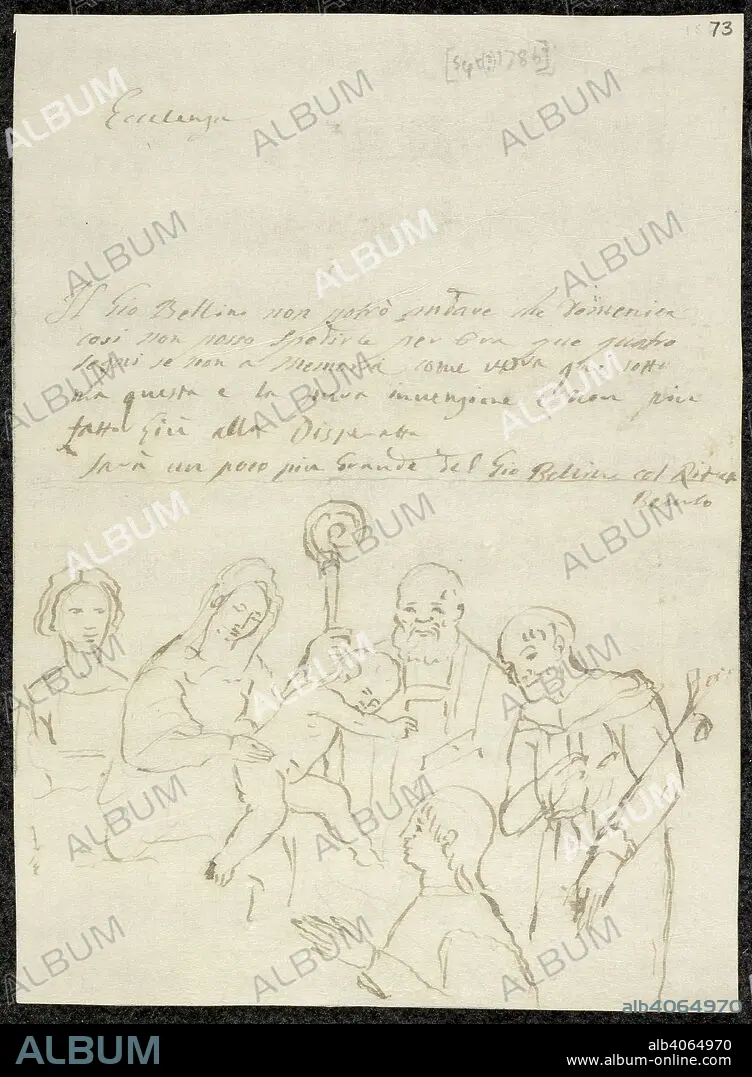 73
[Sept(?) 1786]
Eccelenza
Il Gio Bellino non potrò andare che Domenica
cosi non posso spedirle per Ora que quatro
segni se non a Memoria come vedra qui sotto
ma questa e la invenzione
fatta Giù alla Disperatta
Sarà un poco piu Grande del Gio Bellino col
ALBUM
alb4064970
ALBUM
alb4064970
www.album-online.com